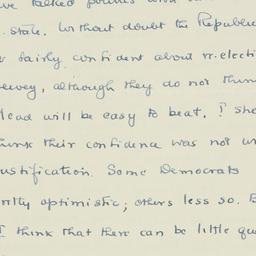 talked
state. Without doubt the Republic
fairly confident about re-electi
ewey, although they do not thin
lead will be easy to beat. I sho
hink their confidence was not un
ustification. Some Democrats
optimistic; others less so. B
I think that there can be little que